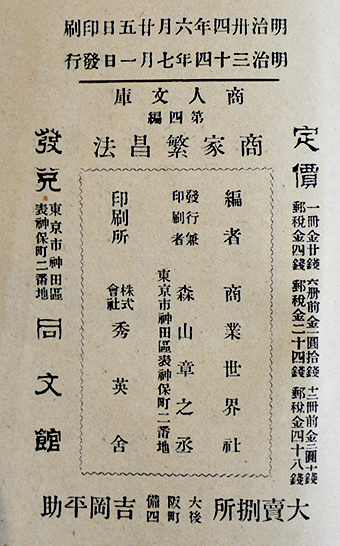 明治卅四年六月廿五日印刷
明治三十四年七月一日發行
商人文庫
第四編
商家繁昌法
定價
一冊金廿錢
郵稅金四錢
六冊前金一圓拾錢
郵稅金二十四錢
郵稅金四十八錢
編者 商業世界社
發行兼印刷者 森山章之丞
東京市神田區表神保町二番地
印刷所 株式會社 秀英舍
發兌
東京市神田區
表神保町二番地
同文館
大賣捌所
大阪備後町四
吉岡平助